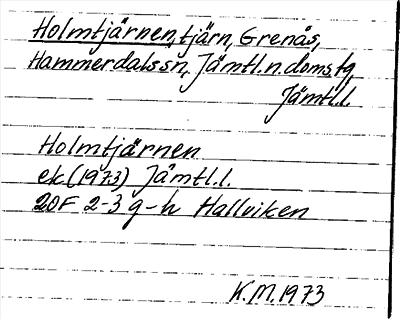 Holmtjärnen, tjärn, Grenås,
Hammerdals sn, Jämtl.n.doms.tg,
Jämtl.l.
Holmtjärnen
ek (1973) Jämtl.l.
20F 2-3 g-h Hallviken
K.M. 1973